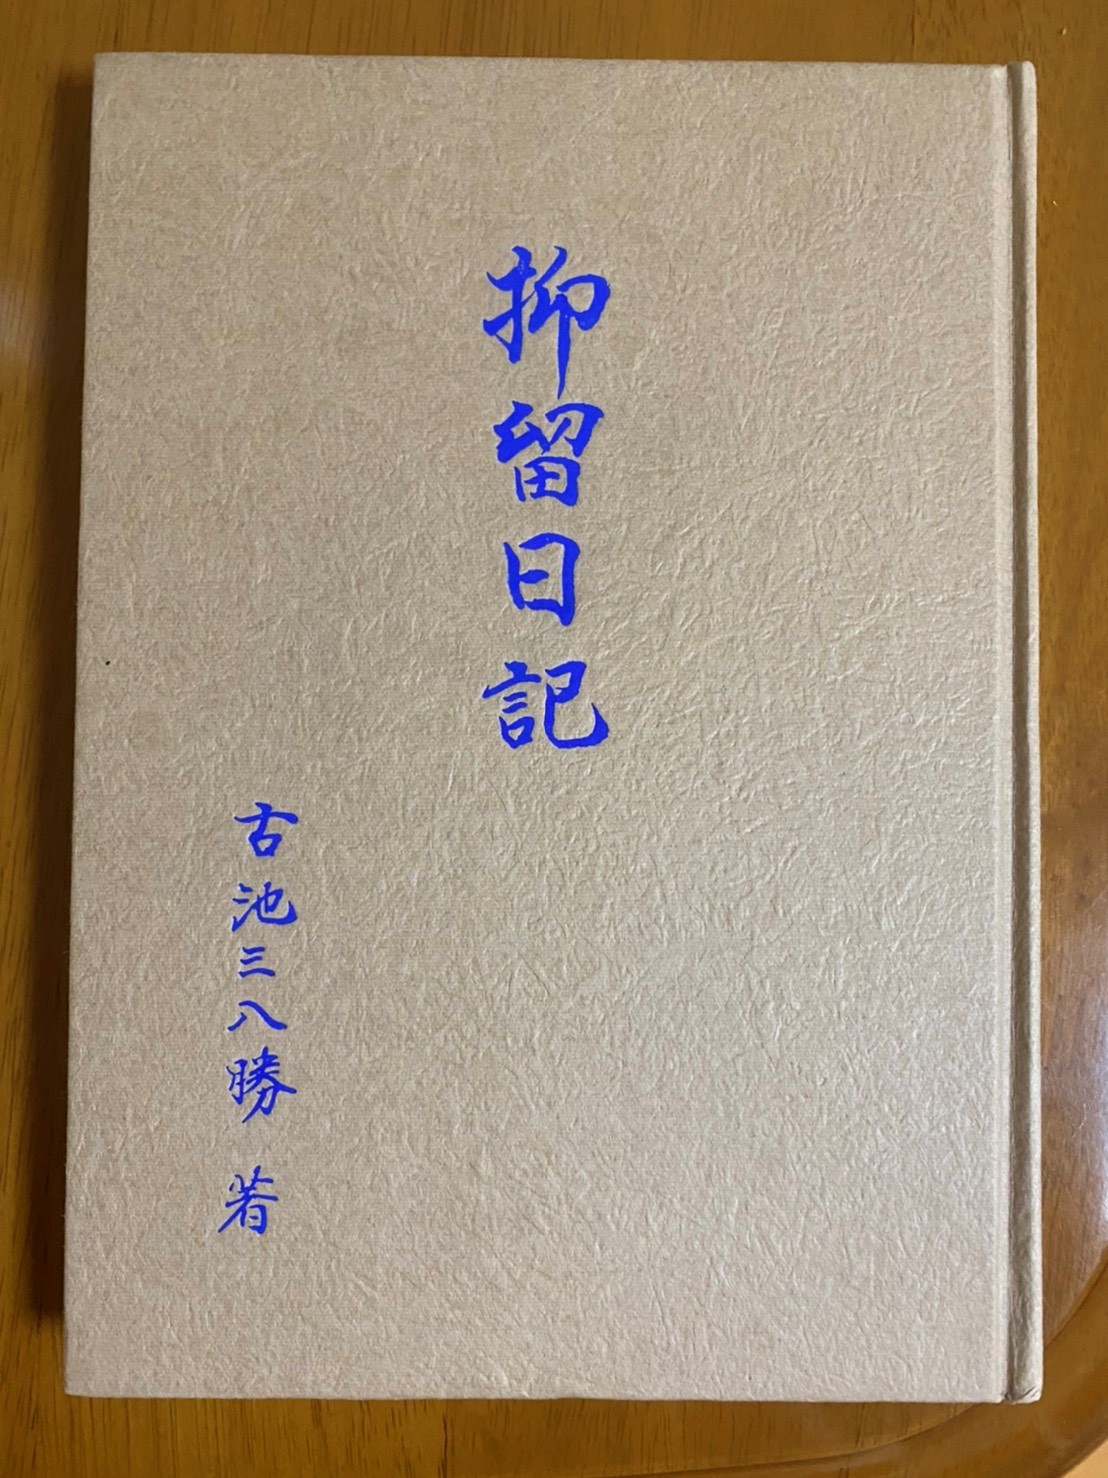 抑留日記
古池三八勝 著